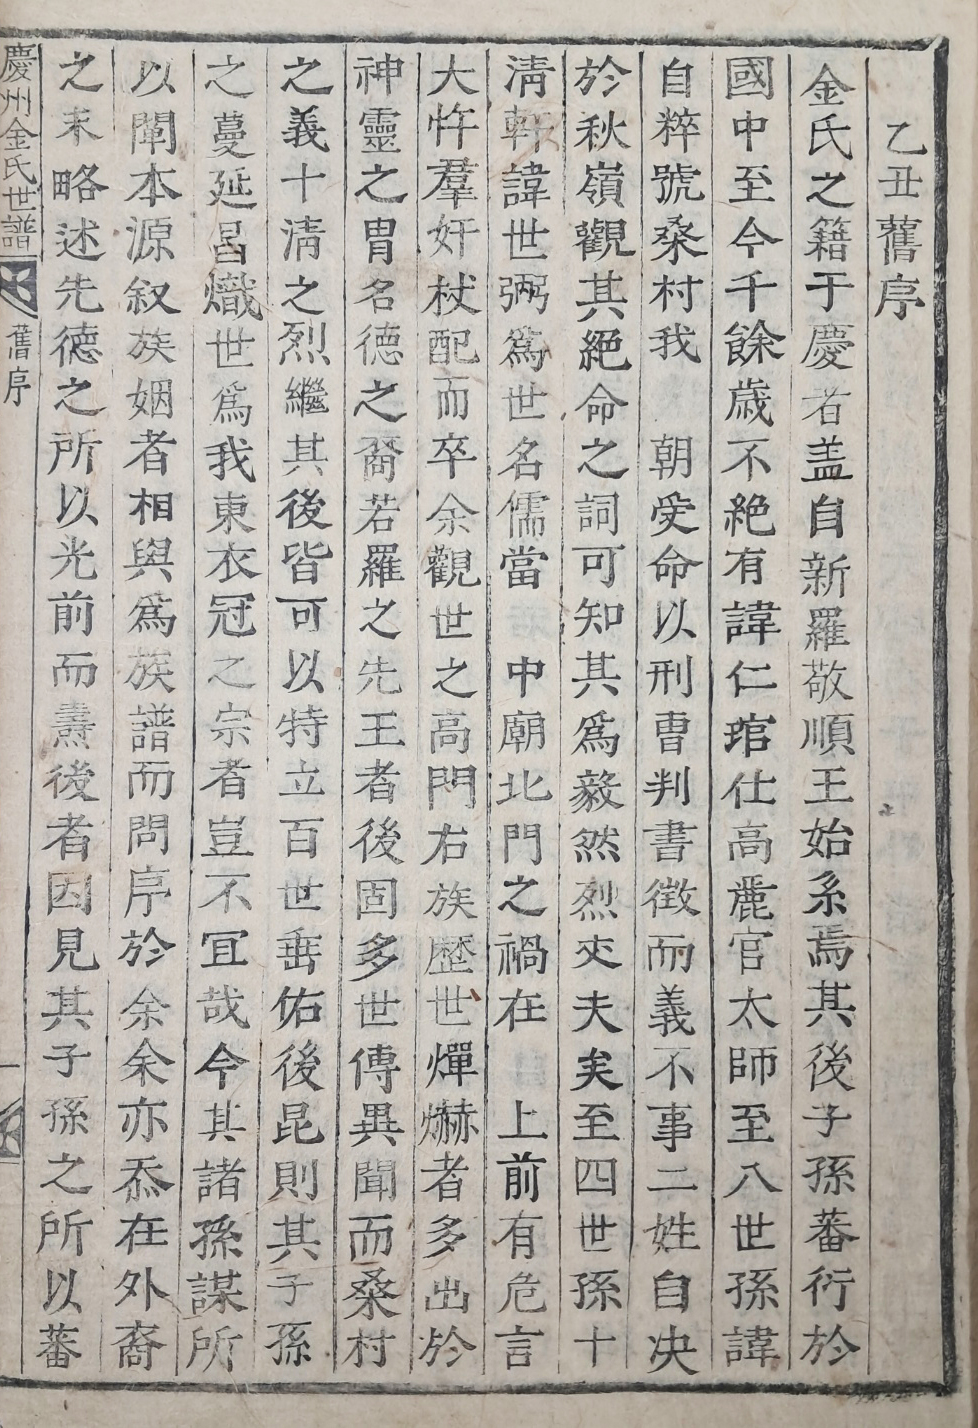 乙丑舊序
金氏之籍于慶者盖自新羅敬順王始系焉其後子孫蕃衍於
國中至今千餘歲不絶有諱仁琯仕高麗官太師至八世孫諱
自粹號桑村我　朝受命以刑曹判書徵而義不事二姓自决
於秋嶺觀其絕命之詞可知其爲毅然烈𠀋夫矣至四世孫十
淸軒諱世弼爲世名儒當　中廟北門之禍在　上前有危言
大忤羣奸杖配而卒余觀世之高門右族歷世燀爀者多出於
神靈之胄名德之裔若羅之先王者後固多世傳異聞而桑村
之義十淸之烈繼其後皆可以特立百世垂佑後昆則其子孫
之蔓延昌熾世爲我東衣冠之宗者豈不冝哉今其諸孫謀所
以闡本源叙族姻者相與爲族譜而問序於余余亦忝在外裔
之末略述先德之所以光前而燾後者因見其子孫之所以蕃
慶州金氏世譜　舊序　一